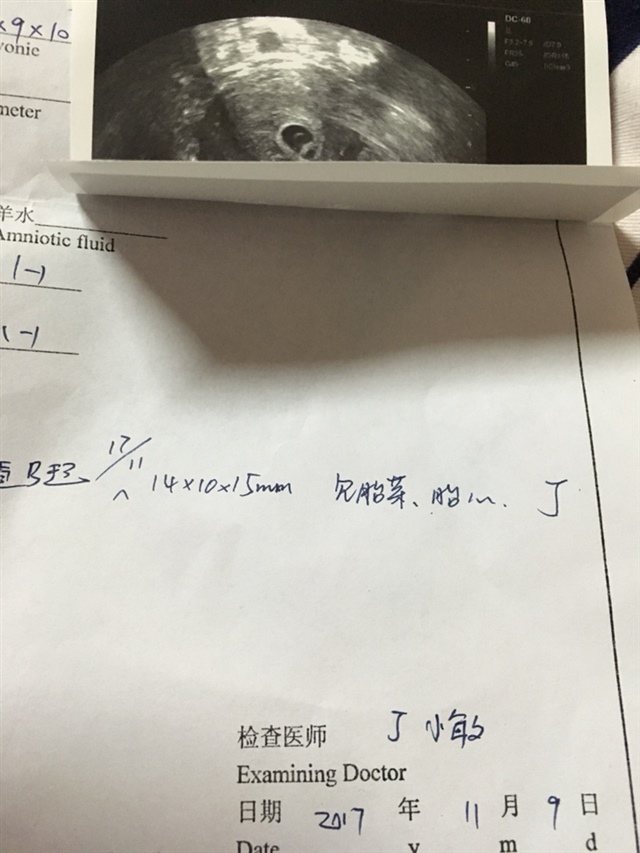 ×9×10
DC-60
yonic
meter
羊水
Amniotic fluid
(-)
(-)
B超 17/11 14×10×15mm 见胎芽、胎心. 丁
检查医师 丁小敏
Examining Doctor
日期 2017 年 11 月 9 日
Date y m d